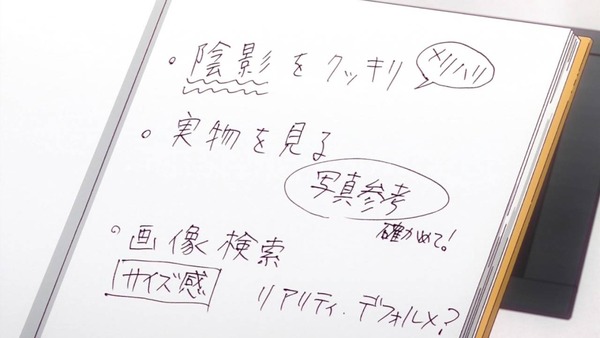 。陰影をクッキリ メリハリ
。実物を見る
写真参考
確かめて!
。画像検索
サイズ感 リアリティ.デフォルメ?